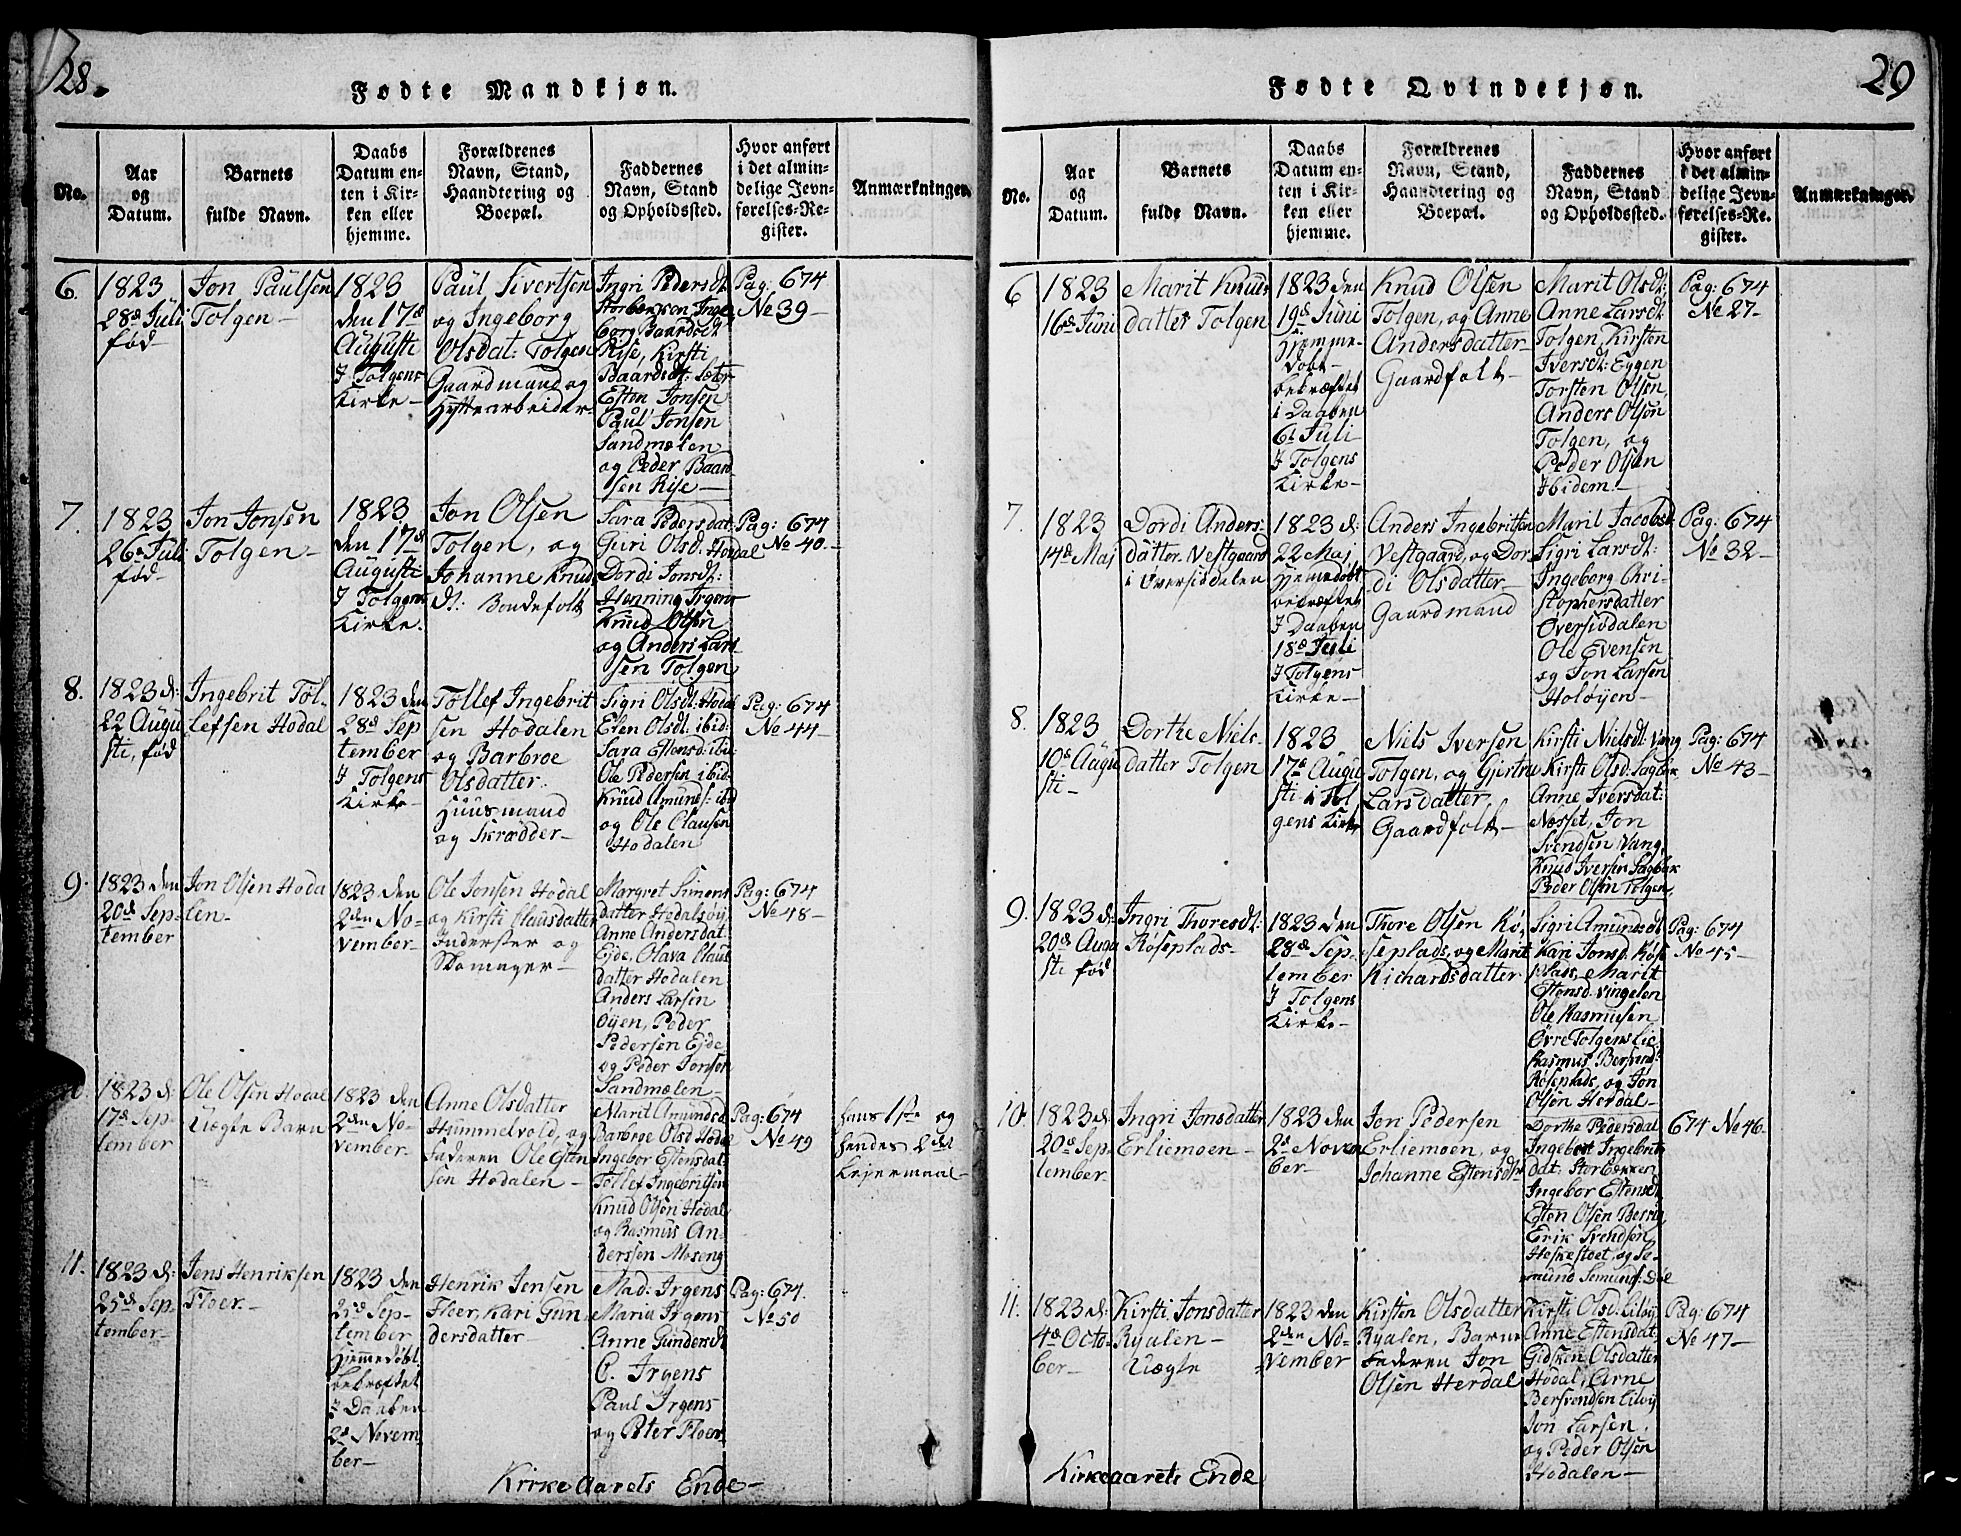 28.
Fødte Mandkjøn.
No.
Aar
og
Datum.
Barnets
fulde Navn.
Daabs
Datum en-
ten i Kir-
ken eller
hjemme.
Forældrenes
Navn, Stand,
Haandtering og
Boepæl.
Faddernes
Navn, Stand
og Opholdssted.
Hvor anført
i det almin-
delige Jevn-
førelses-Re-
gister.
Anmærkninger.
6.
1823
28de Juli
fød
Jon Paulsen
Tolgen-
1823
den 17de
Augusti
I Tolgens
Kirke-
Paul Sivertsen
og Ingeborg
Olsdat: Tolgen
Gaardmand og
Hyttearbeider-
Ingri Pedersdt
Storbekken Inge
borg Baardsdt
Rise, Kirsti
Baardsdt: Sæter
Esten Jonsen
Paul Jonsen
Sandmælen
og Peder Baard
sen Rise-
Pag: 674
No 39-
7.
1823
26de Juli
fød-
Jon Jonsen
Tolgen-
1823
den 17de
Augusti
I Tolgens
Kirke.
Jon Olsen
Tolgen, og
Johanne Knud
dt: Bondefolk
Sara Pedersdat
Guri Olsd: Hodal
Dordi Jonsdt:
Henning Irgens
Knud Olsen
og Anders Lars
sen Tolgen
Pag: 674
No 40-
8.
1823 d:
22 Augu
sti, fød
Ingebrit Tol-
lefsen Hodal
1823 den
28de Sep
tember
I Tolgens
Kirke-
Tollef Ingebrit
sen Hodalen
og Barbroe
Olsdatter.
Huusmand
og Skrædder-
Sigri Olsdt: Hodal
Elen Olsdt. ibid:
Sara Estensd: ibid
Ole Pedersen ibid-
Knud Amunds: ibd
og Ole Clausen
Hodalen
Pag: 674
No 44-
9.
1823 den
20de Sep-
tember
Jon Olsen Hoda
len-
1823 den
2den No-
vember-
Ole Jonsen Hodal
og Kirsti Clausdatter
Inderster og
Skomager-
Margret Simens
datter Hodalsøij
Anne Andersdat
Ejde, Olava Claus
datter Hodalen
Anders Larsen
Øijen, Peder
Pedersen Ejde
og Peder Jonsen
Sandmælen-
Pag: 674
No 48-
10.
1823 d:
17de Sep-
tember
Ole Olsen Hodal
Uægte Barn
1823 den
2den No-
vember-
Anne Olsdatter
Hummelvold, og
Faderen Ole Esten
sen Hodalen-
Marit Amundsd
Barbroe Olsd Hodal
Ingebor Estensdat-
Tollef Ingebritsen
Knud Olsen Hodal
og Rasmus An-
derssen Moseng
Pag: 674
No 49
Hans 1ste og
hendes 2det
Leiermaal-
11.
1823 d:
25de Sep-
tember-
Jens Henriksen
Floer.-
1823 den
25de Sep-
tember
Hjemmedøbt
bekræftet
I Daaben
2de Novem
ber-
Henrik Jensen
Floer, Kari Gun
dersdatter-
Mad: Irgens
Maria Irgens
Anne Gundersdt
C. Irgens
Paul Irgens
og Peter Floer
Pag: 674.
No 50
Kirke Aarets Ende-
29
Fødte Qvindekjøn.
No.
Aar
og
Datum.
Barnets
fulde Navn.
Daabs
Datum en-
ten i Kir-
ken eller
hjemme.
Forældrenes
Navn, Stand,
Haandtering og
Boepæl.
Faddernes
Navn, Stand
og Opholdssted.
Hvor anført
i det almin-
delige Jevn-
førelses-Re-
gister.
Anmærkninger.
6
1823
16de Juni
Marit Knuds
datter Tolgen
1823 den
19de Juni
Hjemme-
døbt-
bekræftet
i Daaben
6t Juli
I Tolgens
Kirke-
Knud Olsen
Tolgen, og Anne
Andersdatter-
Gaardfolk-
Marit Olsdt:
Anne Larsdt:
Tolgen, Kirsten
Iversdt: Eggen
Torsten Olsen,
Anders Olsøn
Tolgen, og
Peder Olsen
Ibidem.-
Pag: 674
No 27-
7.
1823
14de Maj
Dordi Anders-
datter Vestgaard
i Øversiddalen
1823 d:
22 Maj
Hjemedøbt
bekræftet
I Daaben
18de Juli
I Tolgens
Kirke-
Anders Ingebritsen
Vestgaard, og Dor
di Olsdatter-
Gaardmand
Marit Jacobsd
Sigri Larsdt:
Ingeborg Chri-
stophersdatter
Øversiødalen
Ole Evensen
og Jon Larsen
Holøyen-
Pag: 674
No 32-
8.
1823
10de Augu
sti-
Dorthe Niels-
datter Tolgen
1823
17de Augu
sti i Tol
gens Kirke
Niels Iversen
Tolgen, og Giertru
Larsdatter
Gaardfolk-
Kirsti Nielsdt: Vang
Kirsti Olsd: Sagbak
Anne Iversdat:
Næsset, Jon
Svendsen Vang,
Knud Iversen Sagbak
Peder Olsen Tolgen,
Pag: 674
No 43-
9.
1823 d:
20de Augu
sti fød
Ingri Thoresdt:
Røseplads-
1823 den
28de Sep-
tember
I Tolgens
Kirke-
Thore Olsen Rø-
seplads, og Marit
Richardsdatter
Sigri Amundsdt
Kari Jonsd: Røse
plads, Marit
Estensd. Vingelen
Ole Rasmusen
Øvre Tolgens Lie
Rasmus Bersvend
Røseplads, og Jon
Olsøn Herdal-
Pag: 674
No 45-
10.
1823 d:
20de Sep-
tember-
Ingri Jonsdatter
Erliemoen-
1823 den
2de Novem
ber-
Jon Pedersen
Erliemoen, og
Johanne Estensdtr
Dorthe Pedersdat
Ingebor Ingebrits
dat: Storbækken
Ingebor Estensdt
Esten Olsen Berrig
Erik Svendsen
Heskestoet, og Se-
mund Semunds: Døl
674 No 46-
11.
1823 d:
4de Octo-
ber-
Kirsti Jonsdatter
Ryalen-
Uægte
1823 den
2den No-
vember
Kirsten Olsdatter
Ryalen, Barne
Faderen Jon
Olsen Herdal
Kirsti Olsd. Lilvij
Anne Estensdat:
Gidsken Olsdatter
Hodal, Arne
Bersvendsen Lilvij
Jon Larsen,
og Peder Olsen
Hodalen-
Pag: 674
No 47-
Kirkeaarets Ende